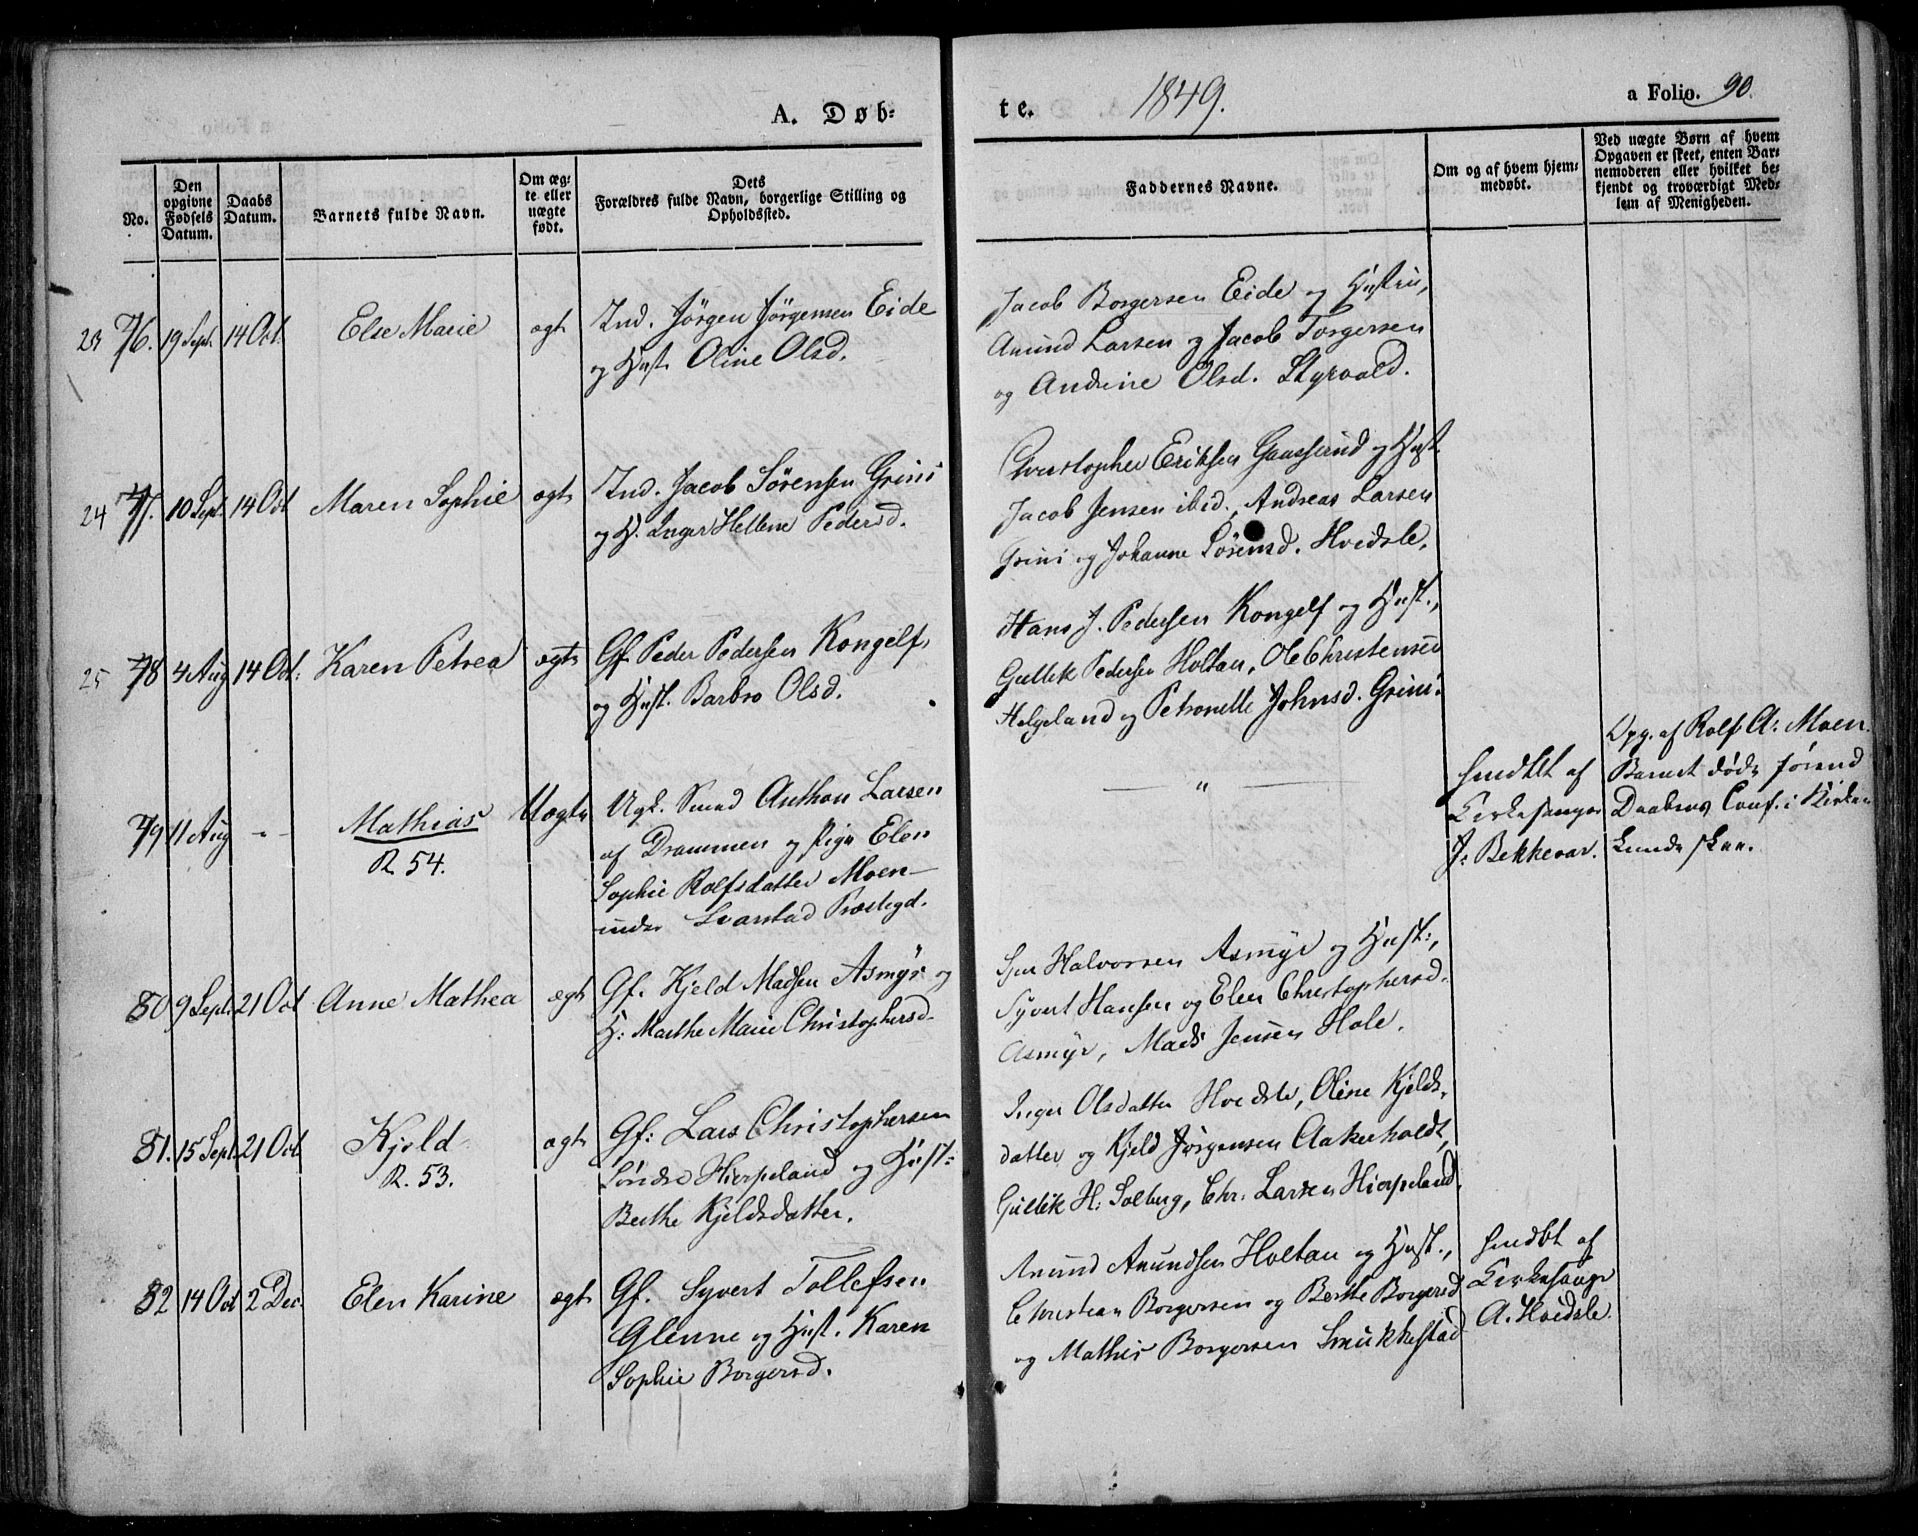 A. Døb=
te.
1849.
a Folio. 90.
No.
Den opgivne Fødsels Datum.
Daabs Datum.
Barnets fulde Navn.
Om ægte eller uægte født.
Dets
Forældres fulde Navn, borgerlige Stilling og
Opholdssted.
Faddernes Navne.
Om og af hvem hjem=
medøbt.
Ved uægte Børn af hvem
Opgaven er skeet, enten Bar=
nemoderen eller hvilket be=
kjendt og troværdigt Med=
lem af Menigheden.
23 76. 19 Sept. 14 Oct. Else Marie ægte
Ind. Jörgen Jörgensen Eide
og Hust. Oline Olsd.
Jacob Borgersen Eide og Hustru,
Anund Larsen og Jacob Torgersen
og Andrine Olsd. Styrvold.
24 77. 10 Sept. 14 Oct Maren Sophie ægte
Ind. Jacob Sörensen Grini
og H. Inger Hellene Pedersd.
Christopher Eriksen Gaasserud og Hust.
Jacob Jensen ibid., Andreas Larsen
Grini og Johanne Sörensd. Hvidsle.
25 78 4 Aug 14 Oct: Karen Petrea ægte
Gf. Peder Pedersen Kongelf
og Hust. Barbro Olsd.
Hans J. Pedersen Kongelf og Hust.,
Gullik Pedersen Holtan, Ole Christensen
Helgeland og Petronelle Johnsd. Grini.
79 11 Aug - - Mathias
R. 54.
Uægte
Ugk. Smed Anthon Larsen
af Drammen og Pige Elen
Sophie Rolfsdatter Moen
under Svarstad Præstegd.
— " —
hmdbt af
Kirkesanger
J. Bekkevar.
Opg. af Rolf A. Moen.
Barnet døde förend
Daabens Conf. i Kirken
kunde skee.
80 9 Sept. 21 Oct Anne Mathea ægte
Gf. Kjeld Madsen Asmyr og
H: Marthe Marie Christophersd.
Halvorsen Asmyr og Hust:,
Syvert Hansen og Elen Christophersd.
Asmyr, Mads Jensen Hole.
81. 15 Sept. 21 Oct. Kjeld
R. 53.
ægte
Gf: Lars Christophersen
Söndre Hierpeland og Hust:
Berthe Kjeldsdatter.
Inger Olsdatter Hvidsle, Oline Kjelds=
datter og Kjeld Jörgensen Aakerholdt,
Gullik H: Solberg, Chr. Larsen Hierpeland.
82 14 Oct 2 Dec. Elen Karine ægte
Gf. Syvert Tollefsen
Glenne og Hust. Karen
Sophie Borgersd.
Anund Anundsen Holtan og Hust.,
Christian Borgersen og Berthe Borgersd
og Mathis Borgersen Smukkestad
hmdbt af
Kirkesanger
A. Hvidsle.